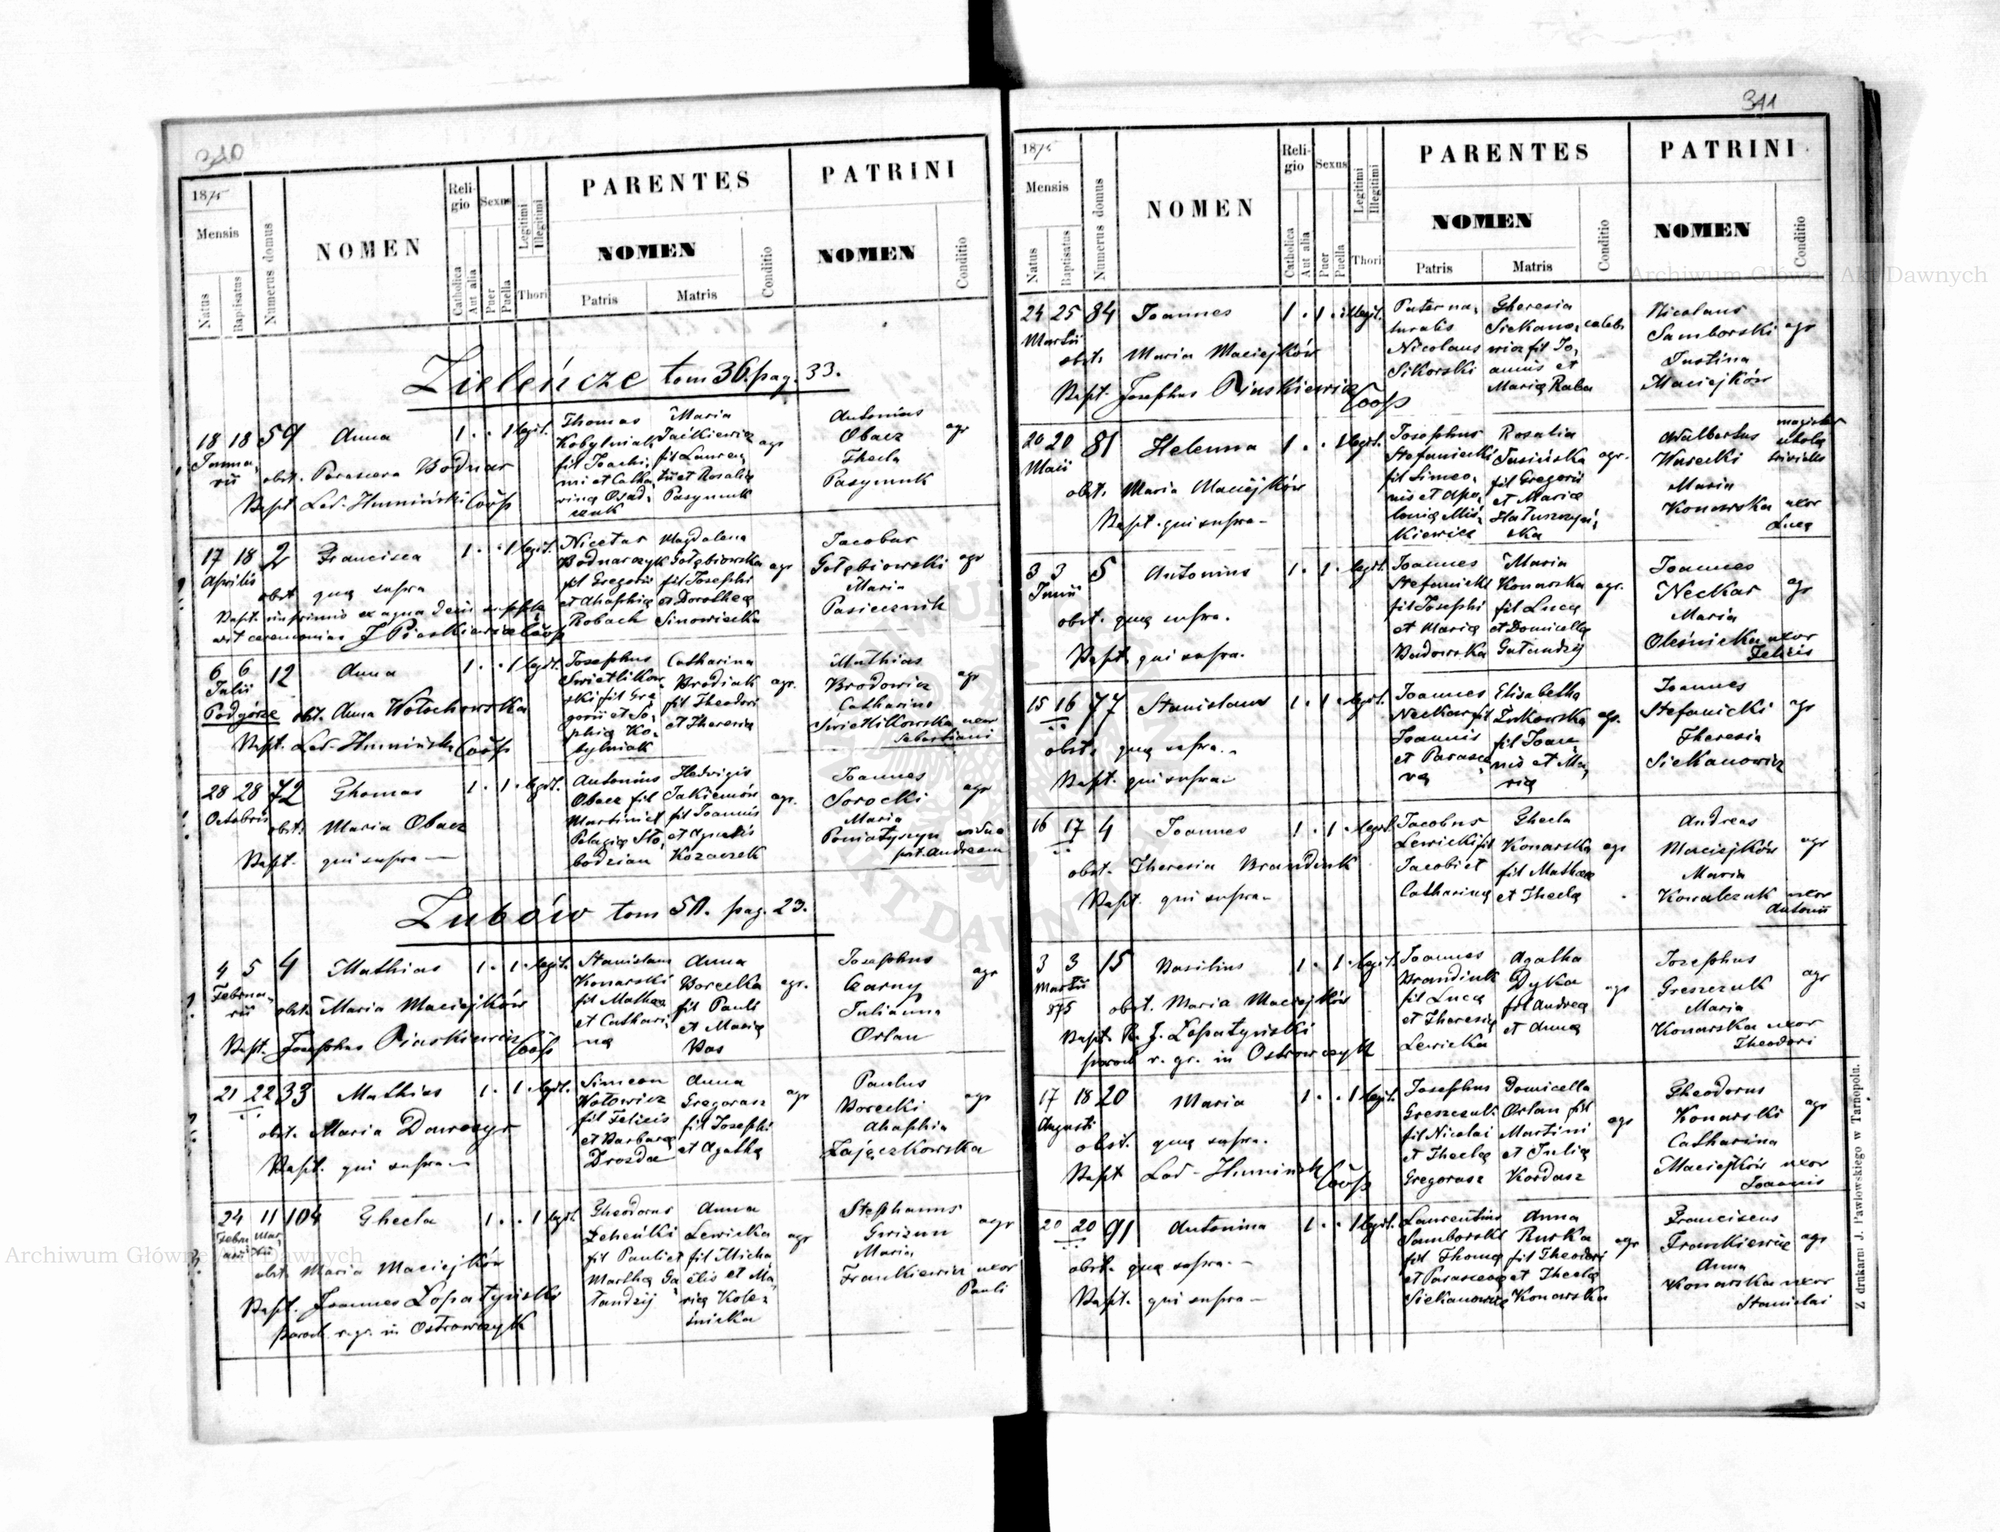 340
1875
Mensis
Natus
Baptisatus
Numerus domus
NOMEN
Religio
Catholica
Aut alia
Sexus
Puer
Puella
Legitimi
Illegitimi
Thori
PARENTES
NOMEN
Patris
Matris
Conditio
PATRINI
NOMEN
Conditio
Zieleńcze tom 36. pag. 33.
18 18 59 Anna 1 . . 1 legit.
Januarii
obst. Parascera Bodnar
Bapt. Lad. Humiński Coop
Thomas
Kobylniak
fil Joachi,
mi et Catha
rina Osad,
czuk
Maria
Jaśkiewicz
fil Lauren,
tii et Rosalia
Pasymuk
agr
Antonius
Obacz
Thecla
Pasymuk
agr
17 18 2 Francisca 1 . . 1 legit.
Aprilis
obst. qua supra
Bapt. in primis ex aqua dein supple,
vit ceremonias J Piaskiewicz Coop
Nicetas
Bodnarczyk
fil Gregorii
et Ahaphia
Robach
Magdalena
Gołębiowska
fil Josephi
et Dorothea
Sinowiecka
agr
Jacobus
Gołębiowski
Maria
Pasiecznik
agr
6 6 12 Anna 1 . . 1 legit.
Julii
Podgórze obst. Anna Wołochowska
Bapt. Lad. Humiński Coop
Josephus
Swietlikow,
ski fil Gre
gorii et So,
phia Ko,
bylniak
Catharina
Brodiak
fil Theodori
et Theresia
agr.
Mathias
Brodowicz
Catharina
Swietlikowska uxor
Sebastiani
agr
28 28 72 Thomas 1 . 1 . legit.
Octobris
obst. Maria Obacz
Bapt. qui supra —
Antonius
Obacz fil
Martini et
Pelagia Sło,
bodzian
Hedvigis
Jakiemów
fil Joannis
et Agnetis
Kozaczek
agr.
Joannes
Sorocki
Maria
Poniatyszyn vidua
post. Andream
agr
Zubów tom 50. pag. 23.
4 5 4 Mathias 1 . 1 . legit.
Februarii
obst. Maria Maciejków
Bapt. Josephus Piaskiewicz Coop
Stanislaus
Konarski
fil Mathea
et Cathari,
na
Anna
Borecka
fil Pauli
et Maria
Bas
agr.
Josephus
Czarny
Julianna
Orlan
agr
21 22 33 Mathias 1 . 1 . legit.
obst. Maria Dawczyr
Bapt. qui supra —
Simeon
Wołowicz
fil Felicis
et Barbara
Drozda
Anna
Gregorasz
fil Josephi
et Agatha
agr
Paulus
Borecki
Ahaphia
Zajączkowska
agr
24 11 104 Thecla 1 . . 1 legit.
Februarii Martii
obst. Maria Maciejków
Bapt. Joannes Łopatyński
paroch. r. gr. in Ostrowczyk
Theodorus
Zeheński
fil Pauli et
Martha Ga
łandzij
Anna
Lewicka
fil Micha
elis et Ma,
ria Kole,
śnicka
agr
Stephanus
Gwizun
Maria
Frankiewicz uxor
Pauli
agr
341
1875
Mensis
Natus
Baptisatus
Numerus domus
NOMEN
Religio
Catholica
Aut alia
Sexus
Puer
Puella
Legitimi
Illegitimi
Thori
PARENTES
NOMEN
Patris
Matris
Conditio
PATRINI
NOMEN
Conditio
24 25 84 Joannes 1 . 1 . illegit.
Martii
obst. Maria Maciejków
Bapt. Josephus Piaskiewicz Coop
Pater na,
turalis
Nicolaus
Sikorski
Theresia
Siekano,
wicz fil Jo,
annis et
Maria Raba
caleb.
Nicolaus
Samborski
Justina
Maciejków
agr
20 20 81 Helenna 1 . . 1 legit.
Maii
obst. Maria Maciejków
Bapt. qui supra —
Josephus
Stefanicki
fil Simeo,
nis et Apo,
lonia Mis,
kiewicz
Rosalia
Jasińska
fil Gregorii
et Maria
Hałuszczyń,
ska
agr.
Adalbertus
Warecki
Maria
Konarska uxor
Luca
magister
schola
3 3 5 Antonius 1 . 1 . legit.
Junii
obst. qua supra.
Bapt. qui supra.
Joannes
Stefanicki
fil Josephi
et Maria
Badowska
Maria
Konarska
fil Luca
et Domicella
Gałandzij
agr.
Joannes
Neckar
Maria
Oleśnicka uxor
Felicis
agr
15 16 77 Stanislaus 1 . 1 . legit.
obst. qua supra. -
Bapt. qui supra —
Joannes
Neckar fil
Joannis
et Parasce
va
Elisabetha
Żukowska
fil Joan
nis et Ma,
ria
agr.
Joannes
Stefanicki
Theresia
Siekanowicz
agr
16 17 4 Joannes 1 . 1 . legit.
obst. Theresia Brandiuk
Bapt. qui supra —
Jacobus
Lewicki fil
Jacobi et
Catharina
Thecla
Konarska
fil Mathea
et Thecla
agr
Andreas
Maciejków
Maria
Kowalczuk uxor
Antonii
agr
3 3 15 Basilius 1 . 1 . legit.
Martii
875
obst. Maria Maciejków
Bapt. R. J. Łopatyński
paroch r. gr. in Ostrowczyk
Joannes
Brandiuk
fil Luca
et Theresia
Lewicka
Agatha
Dyka
fil Andrea
et Anna
agr
Josephus
Greszczuk
Maria
Konarska uxor
Theodori
agr
17 18 20 Maria 1 . . 1 legit.
Augusti
obst. qua supra.
Bapt Lad. Humińsk Coop
Josephus
Greszczuk
fil Nicolai
et Thecla
Gregorasz
Domicella
Orlan fil
Martini
et Julia
Kordasz
agr
Theodorus
Konarski
Catharina
Maciejków uxor
Joannis
agr
20 20 91 Antonina 1 . . 1 legit.
obst. qua supra. —
Bapt. qui supra —
Laurentius
Samborski
fil Thoma
et Parasceva
Siekanowicz
Anna
Rurka
fil Theodori
et Thecla
Konarska
agr
Franciscus
Frankiewicz
Anna
Konarska uxor
Stanislai
agr
Z drukarni J. Pawłowskiego w Tarnopolu.
Archiwum Główne Akt Dawnych
Archiwum Główne Akt Dawnych